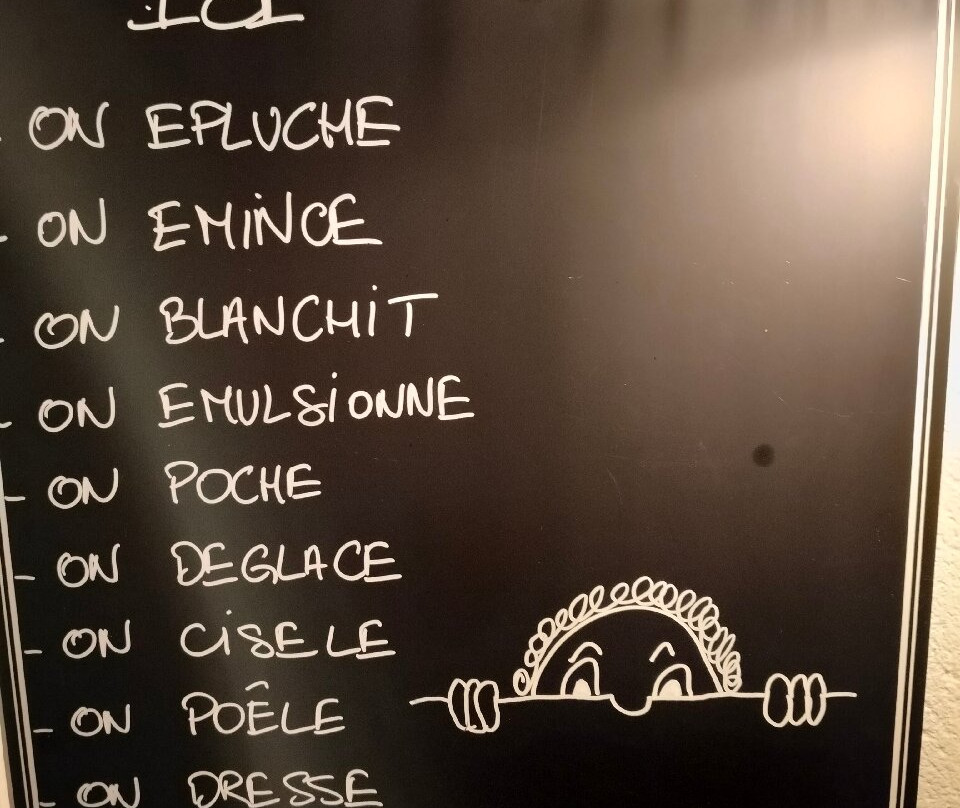 ICI
- ON EPLUCHE
- ON EMINCE
- ON BLANCHIT
- ON EMULSIONNE
- ON POCHE
- ON DEGLACE
- ON CISELE
- ON POÊLE
- ON DRESSE